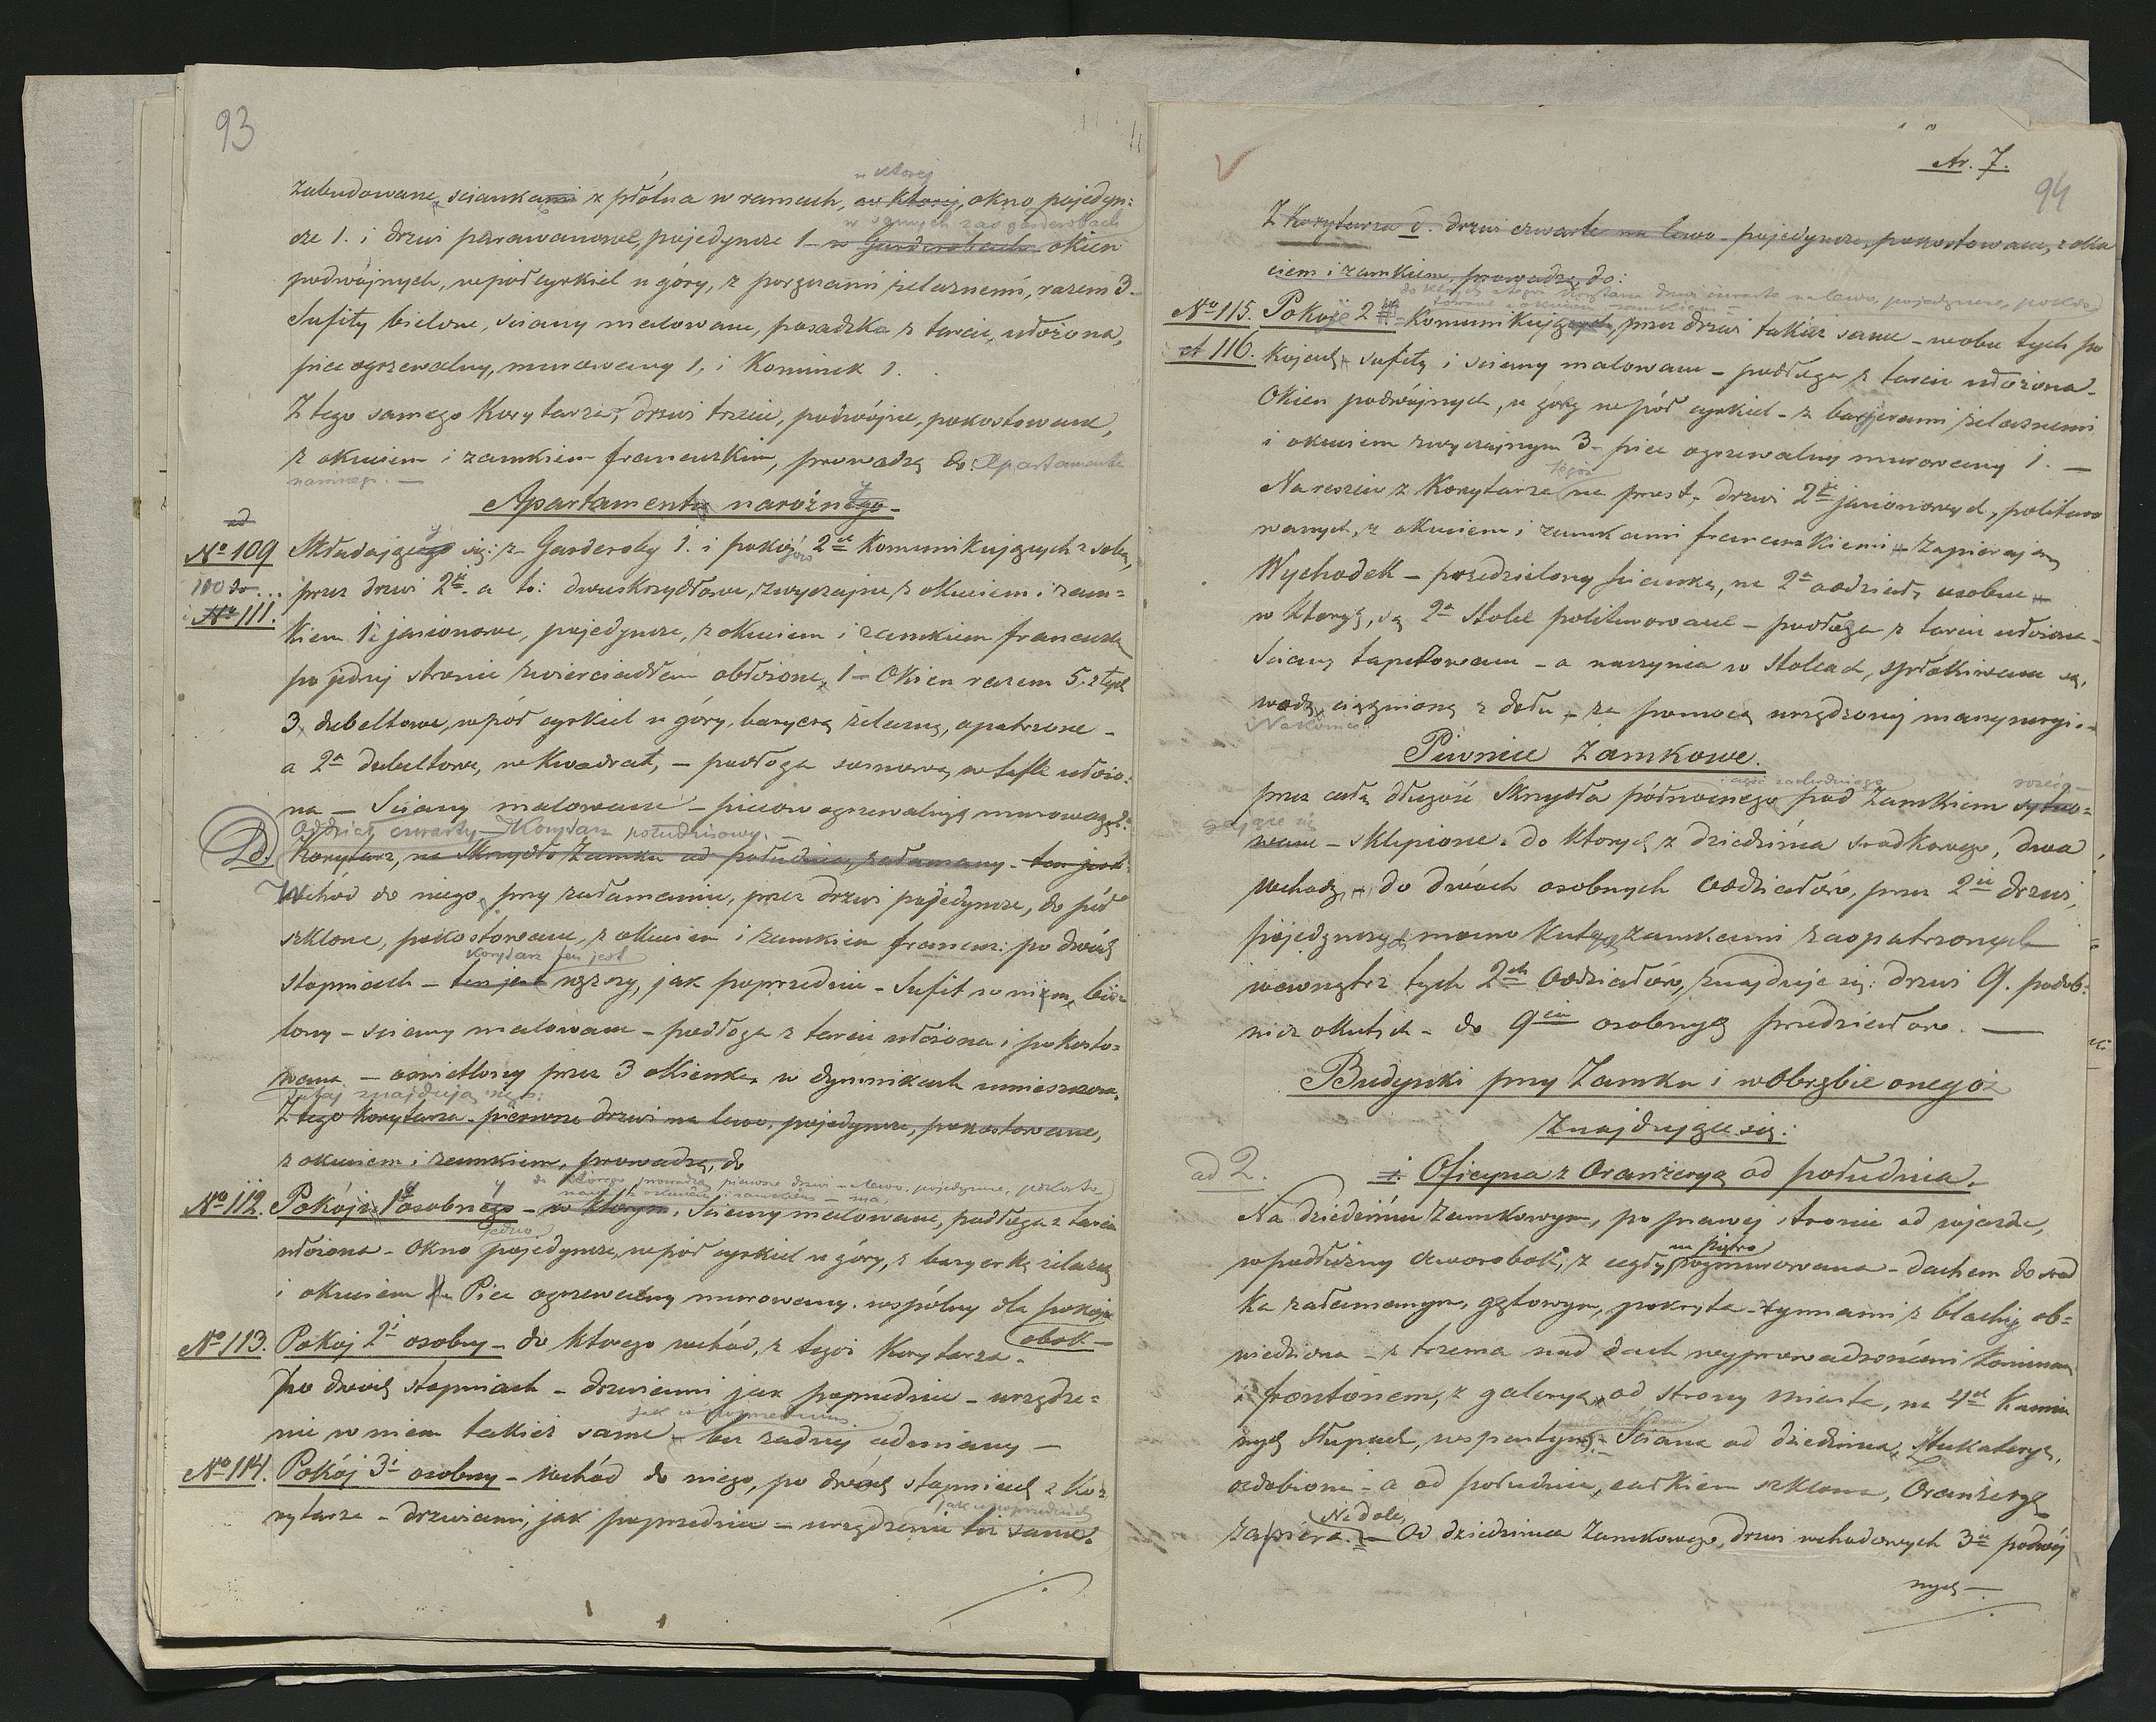 93
w ktorej
zabudowane, sciankami z płótna w ramach, w ktorej, okno pojedyn:
w samych zaś garderobach
cze 1. i drzwi parawanowe, pojedyncze 1 – w Garderobach okien
podwójnych, w pół cyrkiel u góry, z poręczami żelaznemi, razem 3 –
Sufity bielone, sciany malowane, posadzka z tarcic ułożona,
piec ogrzewalny, murowany 1, i Kominek 1.
Z tego samego Korytarza, drzwi trzecie, podwójne, pokostowane,
z okuciem i zamkiem francuzkim, prowadzą do: Apartamentu
narożnego. –
Apartamentu narożnego –
ad
No 109
110
i No 111.
Składającego się: z Garderoby 1. i pokoj 2ch Komunikujących z sobą,
przez drzwi 2e. a to: dwuskrzydłowe, zwyczajne, z okuciem i zam=
kiem 1e jasionowe, pojedyncze, z okuciem i zamkiem francuzk
po jednej stronie zwierciadłem obłożone, 1 – Okien razem 5. z tych
3, dubeltowe, w pół cyrkiel u góry, baryerą żelazną, opatrzone –
a 2a dubeltowe, w Kwadrat, – podłoga sosnowa, w tafle ułożo:
na – Sciany malowane – piecow ogrzewalnych murowanych 2.
Oddział czwarty – Korytarz południowy. –
D.
Korytarz, na Skrzydło Zamku od południa, załamany – ten jest
Wchód do niego, przy załamaniu, przez drzwi pojedyncze, do pół
szklone, pokostowane, z okuciem i zamkiem francuz: po dwóch
Korytarz ten jest
stopniach – ten jest wązszy, jak poprzednie – Sufit w niem, bie=
lony – sciany malowane – podłoga z tarcic ułożona i pokosto=
wana – oswietlony przez 3 okienka, w dymnikach umieszczone.
Tutaj znajdują się:
Z tego korytarza – pierwsze drzwi na lewo, pojedyncze, pokostowane,
z okuciem i zamkiem, prowadzą, do
do którego prowadzą pierwsze drzwi na lewo, pojedyncze, pokosto=
wane z okuciem i zamkiem – ma,
No 112. Pokój 1 osobnego – w ktorym, Sciany malowane, podłoga z tarcic
jedno
ułożona – Okno pojedyncze, w pół cyrkiel u góry, z baryerką żelazną
i okuciem Piec ogrzewalny murowany. wspólny dla pokoju
obok –
No 113. Pokoj 2i osobny – do ktorego wchód, z tegoż Korytarza –
po dwóch stopniach – drzwiami jak poprzednie – urządze=
jak w poprzednim
nie w niem takież same – bez żadnej odmiany –
No 114. Pokój 3i osobny – wchód do niego, po dwóch stopniach z Ko=
jak w poprzednich
rytarza – drzwiami, jak poprzednie – urządzenie też same.
Ar. 7.
94
Z Korytarza D. drzwi czwarte na lewo – pojedyncze, pokostowane, z oku
ciem i zamkiem, prowadzą do:
do których z tegoż Korytarza drzwi czwarte na lewo, pojedyncze, pokos
towane z okuciem i zamkiem –
No 115. Pokoje 2 – Komunikujących, przez drzwi takież same – w obu tych po
et 116. kojach sufity i sciany malowane – podłoga z tarcic ułożona –
Okien podwójnych, u góry w pół cyrkiel – z baryjerami żelaznemi
i okuciem zwyczajnym 3 – piec ogrzewalny murowany 1. –
tegoż
Nareszcie z Korytarza na prost, drzwi 2ie jasionowych, politoro
wanych, z okuciem i zamkami francuzkiemi – Zapierają
Wychodek – przedzielony scianką, na 2a oddziały osobne
w ktorych, są 2a Stolce politurowane – podłoga z tarcic ułożona –
Sciany tapetowane – a naczynia w Stolcach, spłókiwane są,
wodą, ciągnioną z dołu – za pomocą urządzonej maszynergi. –
Nakoniec:
Piwnice Zamkowe.
i część zachodniego
rozcią –
przez całą długość Skrzydła północnego pod Zamkiem sytuo=
gające się
wane – sklepione – do ktorych z dziedzińca srodkowego, dwa
wchody, do dwóch osobnych oddziałów, przez 2ie drzwi,
pojedynczych mocno kutych zamkami zaopatrzonych
wewnątrz tych 2ch Oddziałów, znajduje się: drzwi 9. podob=
nież okutych – do 9ciu osobnych przedziałow. –
Budynki przy Zamku i w Obrębie onegoż
Znajdujące się:
ad 2. Oficyna z Oranżeryą od południa. –
Na dziedzińcu Zamkowym, po prawej stronie od wjazdu,
na piętro
w podłużny czworobok, z cegły, wymurowana – dachem do srod
ka załamanym, gątowym, pokryta – rynnami z blachy ob=
wiedziona – z trzema nad dach wyprowadzonemi kominami
i frontonem, z galeryą, od strony miasta, na 4ch kamien
nych Słupach, wspartym – Sciana od dziedzińca, Stukateryą,
ozdobiona – a od południa, całkiem szklona, Oranżeryę
Na dole,
zawiera. – Od dziedzińca Zamkowego, drzwi wchodowych 3ie podwój
nych –